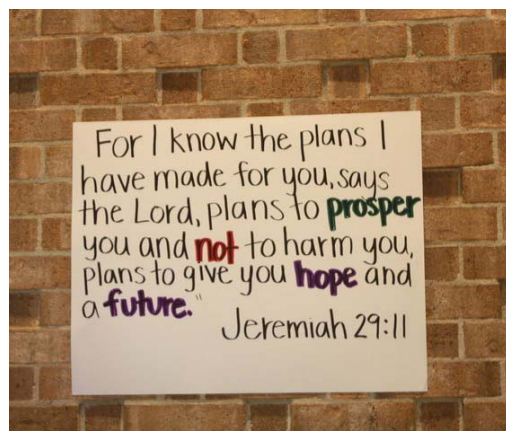 For I know the plans I
have made for you, says
the Lord, plans to prosper
you and not to harm you,
plans to give you hope and
a future."
Jeremiah 29:11